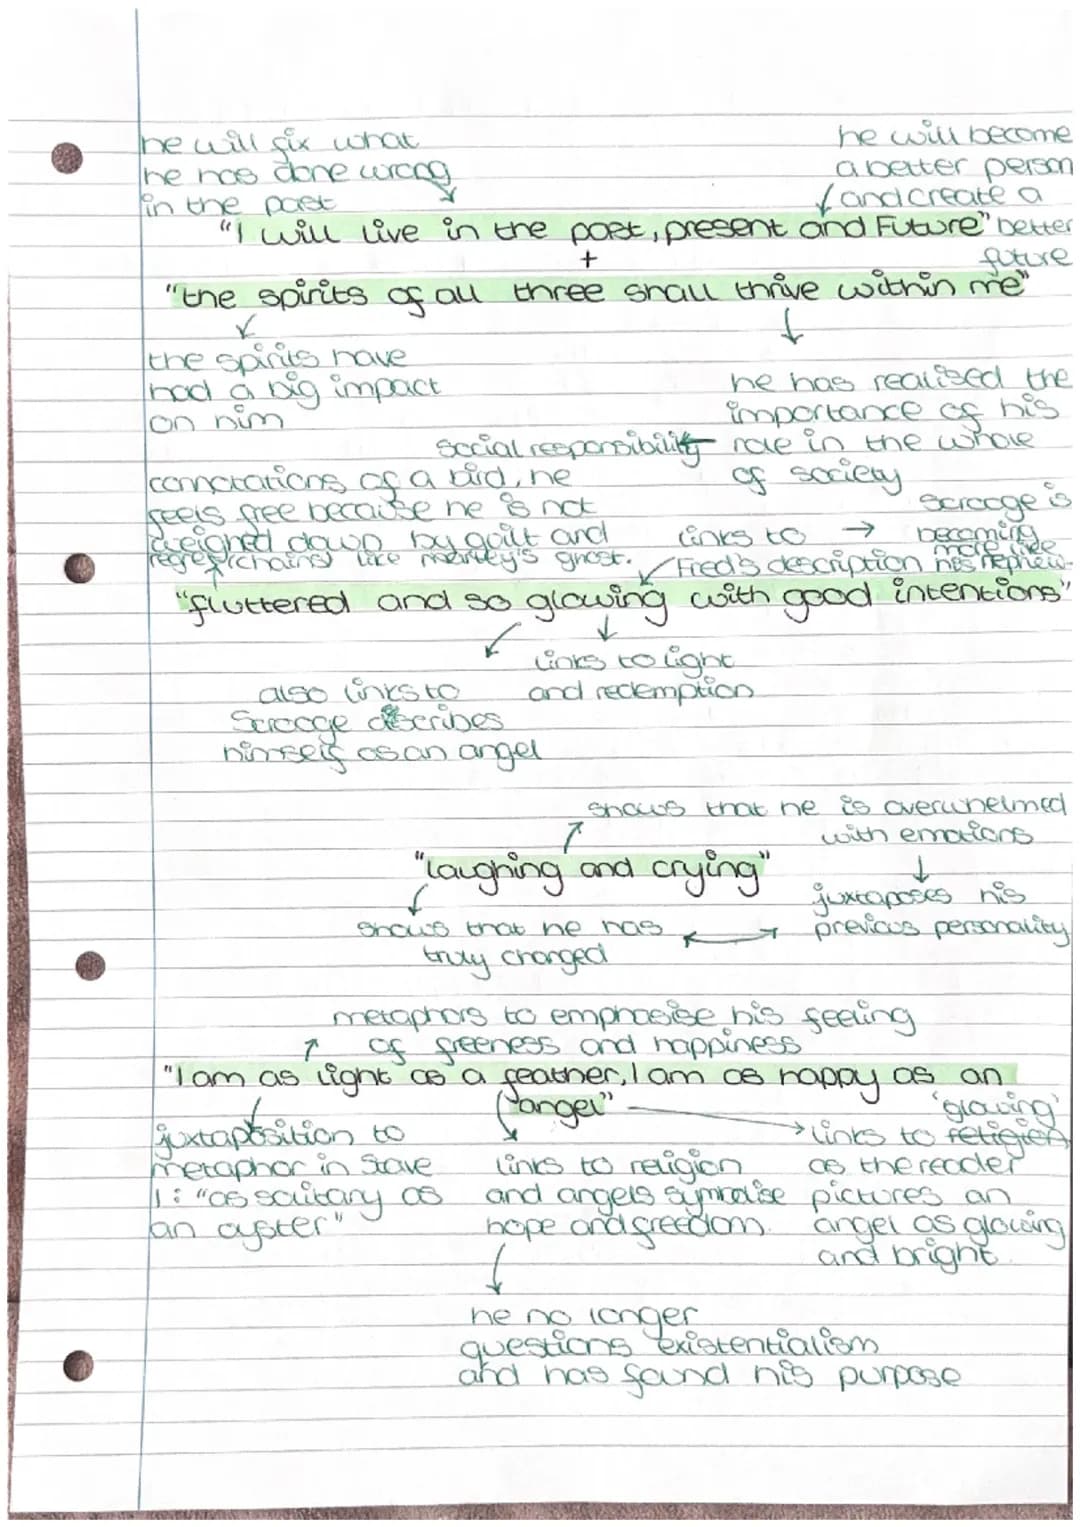 he will fix what
he has done wrong
in the past
he will become
a better person
and create a
better
future
"I will live in the past, present and Future"
+
"the spirits of all three shall thrive within me"
the spirits have
had a big impact
on him
he has realised the
importance of his
role in the whole
of society
social responsibility
connotations of a bird, he
feels free because he is not
weighed down by guilt and
regret (chains) like marley's ghost.
links to →
Fred's description
Scrooge is
becoming
more like
his nephew
"fluttered and so glowing with good intentions"
links to light
and redemption
also links to
Scrooge describes
himself as an angel
shows that he is overwhelmed
with emotions
"laughing and crying"
juxtaposes his
previous personality
shows that he has
truly changed
metaphors to emphasise his feeling
of freeness and happiness
"I am as light as a feather, I am as happy as an
angel"
juxtaposition to
metaphor in Stave
1: "as solitary as
an oyster"
links to religion
and angels symbolise
hope and freedom.
he no longer
questions existentialism
and has found his purpose
'glowing'
links to religion
as the reader
pictures an
angel as glowing
and bright.